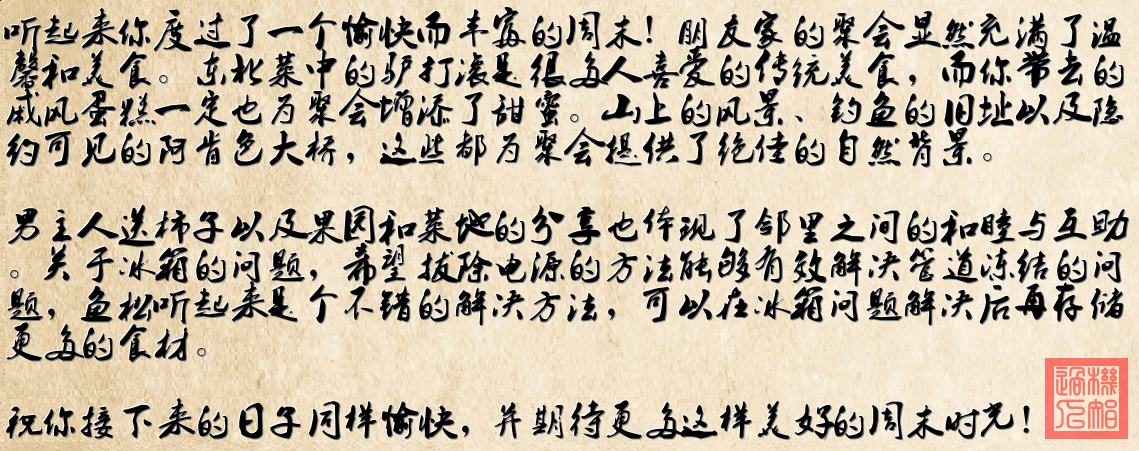 听起来你度过了一个愉快而丰富的周末！朋友家的聚会显然充满了温
馨和美食。东北菜中的驴打滚是很多人喜爱的传统美食，而你带去的
戚风蛋糕一定也为聚会增添了甜蜜。山上的风景、钓鱼的旧址以及隐
约可见的阿肯色大桥，这些都为聚会提供了绝佳的自然背景。
男主人送柿子以及果园和菜地的分享也体现了邻里之间的和睦与互助
。关于冰箱的问题，希望拔除电源的方法能够有效解决管道冻结的问
题，鱼松听起来是个不错的解决方法，可以在冰箱问题解决后再存储
更多的食材。
祝你接下来的日子同样愉快，并期待更多这样美好的周末时光！